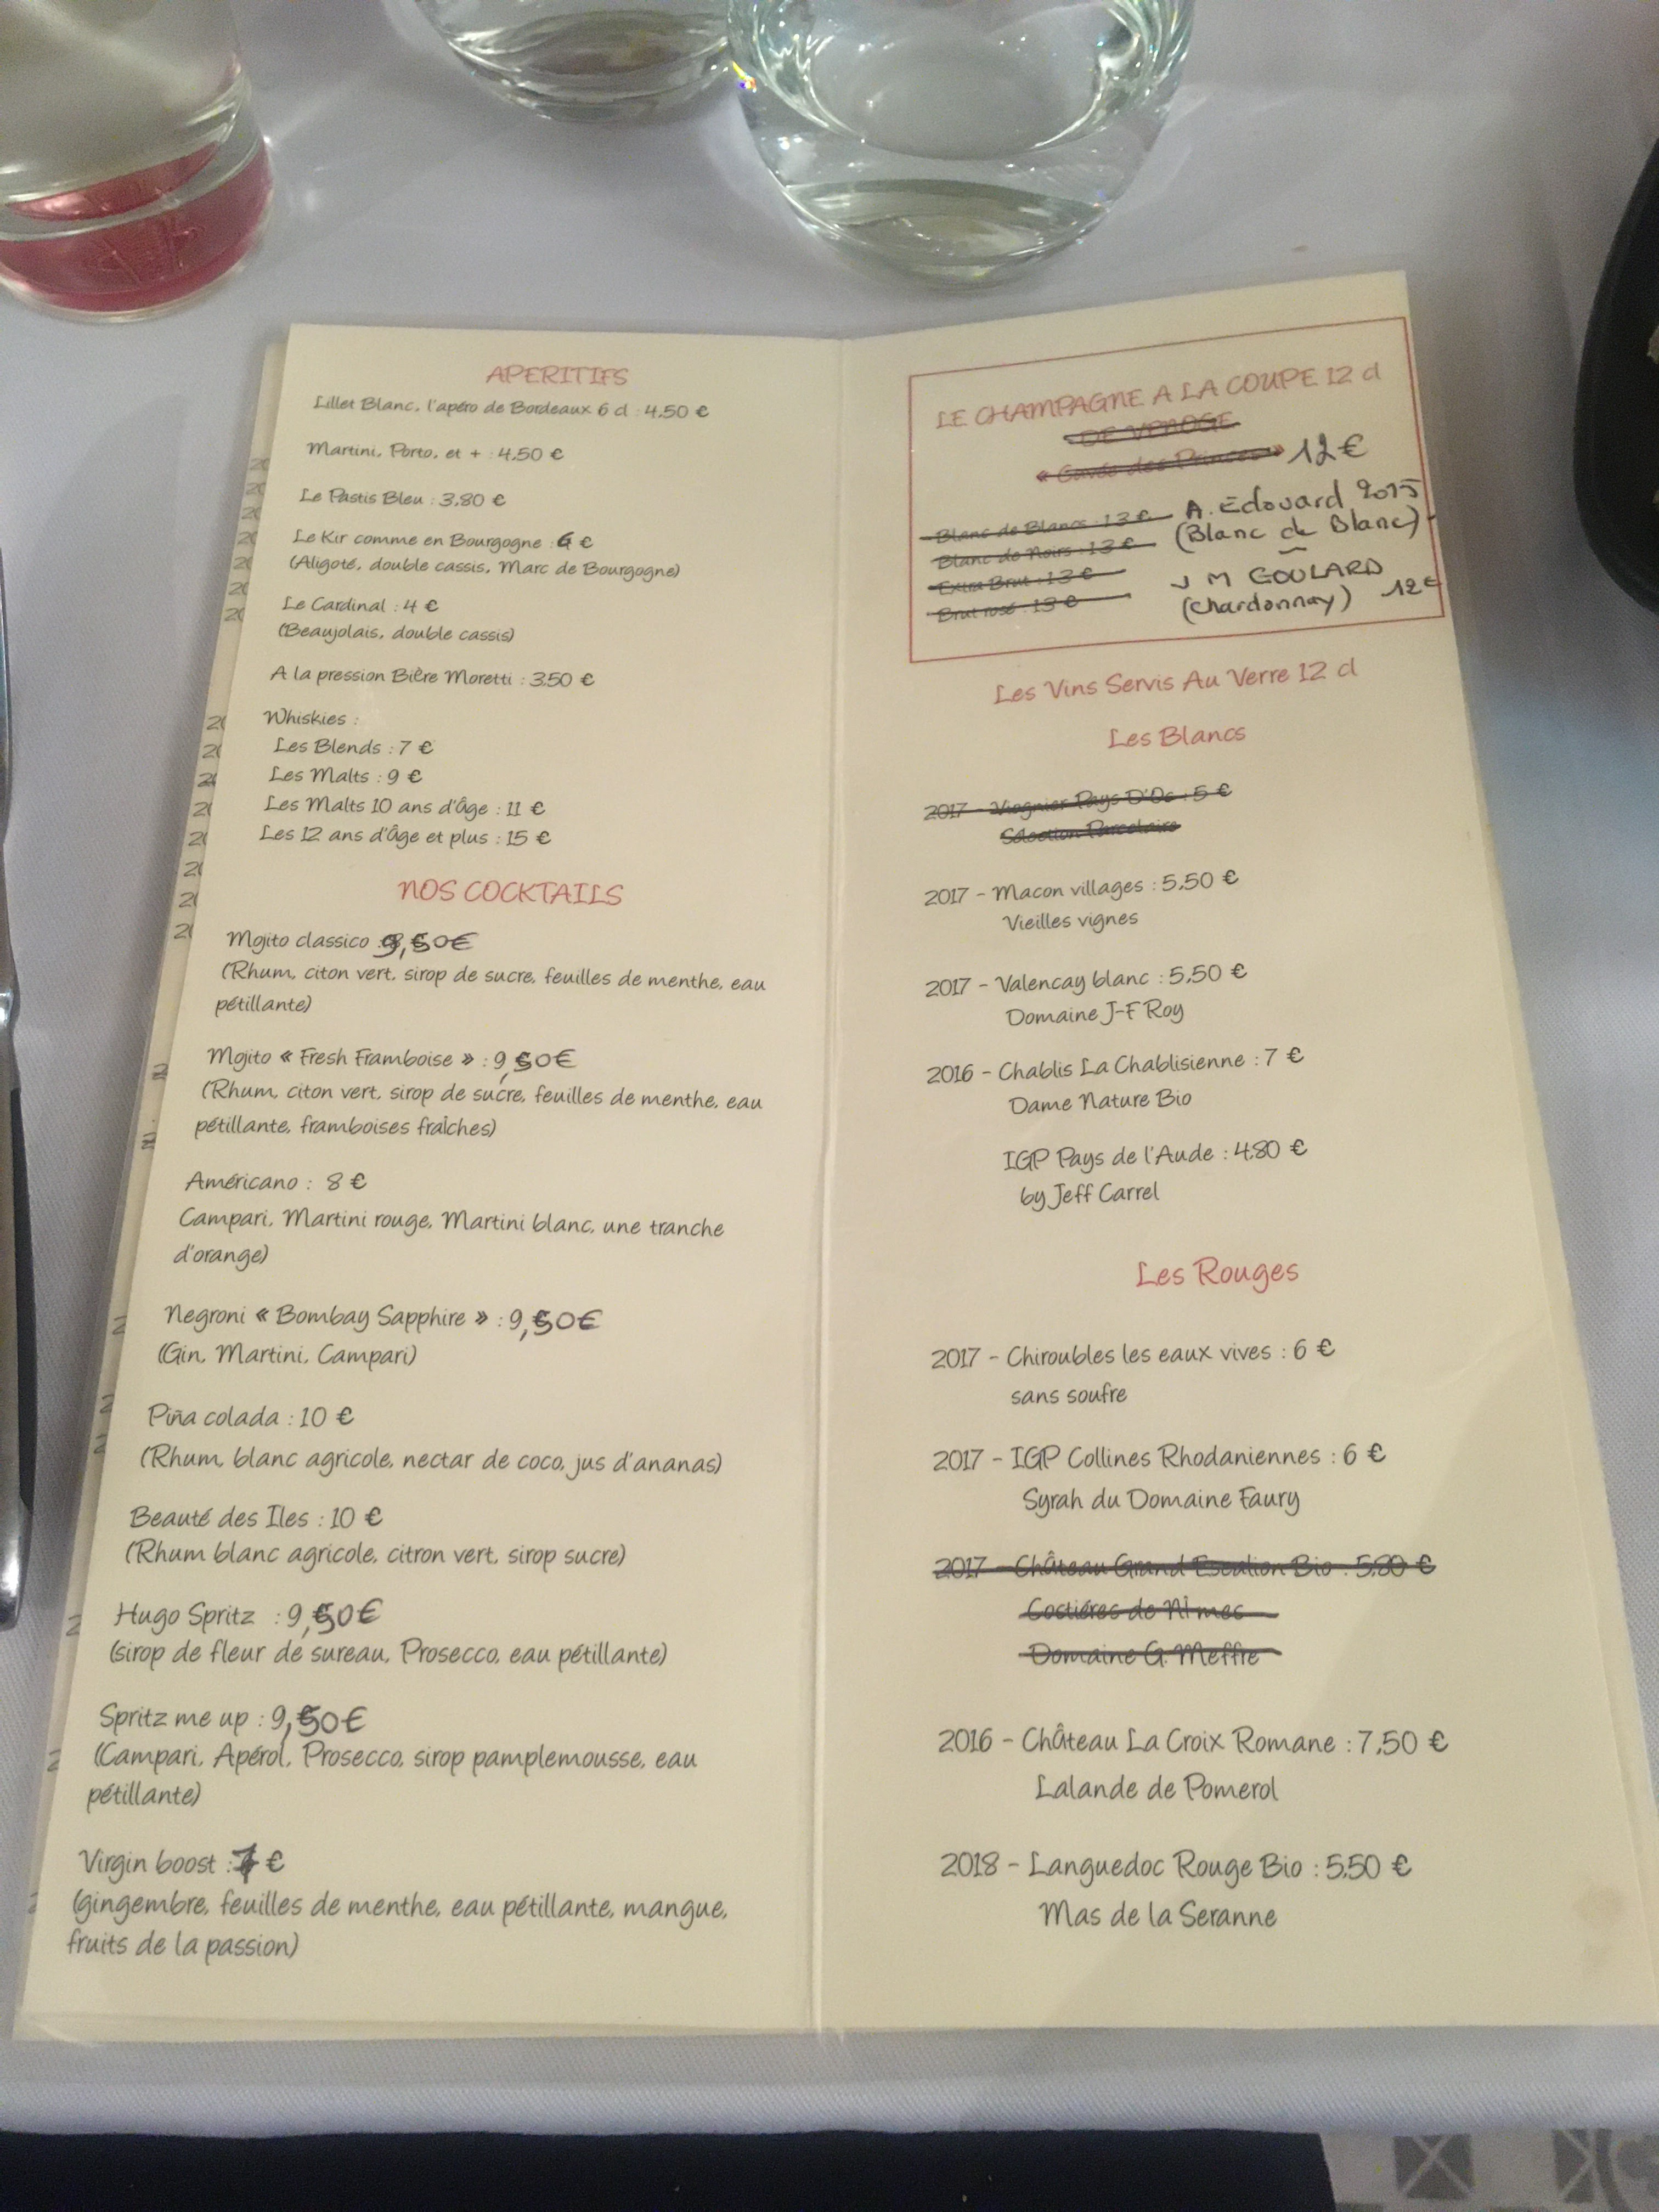 APERITIFS
Lillet Blanc, l'apéro de Bordeaux 6 cl : 4,50 €
Martini, Porto, et + : 4,50 €
Le Pastis Bleu : 3,80 €
Le Kir comme en Bourgogne : 6 €
(Aligoté, double cassis, Marc de Bourgogne)
Le Cardinal : 4 €
(Beaujolais, double cassis)
A la pression Bière Moretti : 3,50 €
Whiskies :
Les Blends : 7 €
Les Malts : 9 €
Les Malts 10 ans d'Âge : 11 €
Les 12 ans d'Âge et plus : 15 €
NOS COCKTAILS
Mojito classico : 9,50€
(Rhum, citon vert, sirop de sucre, feuilles de menthe, eau
pétillante)
Mojito « Fresh Framboise » : 9,50€
(Rhum, citon vert, sirop de sucre, feuilles de menthe, eau
pétillante, framboises fraîches)
Américano : 8 €
Campari, Martini rouge, Martini blanc, une tranche
d'orange)
Negroni « Bombay Sapphire » : 9,50€
(Gin, Martini, Campari)
Piña colada : 10 €
(Rhum, blanc agricole, nectar de coco, jus d'ananas)
Beauté des Iles : 10 €
(Rhum blanc agricole, citron vert, sirop sucre)
Hugo Spritz : 9,50€
(sirop de fleur de sureau, Prosecco, eau pétillante)
Spritz me up : 9,50€
(Campari, Apérol, Prosecco, sirop pamplemousse, eau
pétillante)
Virgin boost : 7 €
(gingembre, feuilles de menthe, eau pétillante, mangue,
fruits de la passion)
LE CHAMPAGNE A LA COUPE 12 cl
DE VENOGE
« Cuvée des Princes » 12€
Blanc de Blancs : 13 € A. Edouard 2015
Blanc de Noirs : 13 € (Blanc de Blanc)
Extra Brut : 13 € J M GOULARD
Brut rosé : 13 € (Chardonnay) 12€
Les Vins Servis Au Verre 12 cl
Les Blancs
2017 - Viognier Pays D'Oc : 5 €
Sélection Parcelaire
2017 - Macon villages : 5,50 €
Vieilles vignes
2017 - Valencay blanc : 5,50 €
Domaine J-F Roy
2016 - Chablis La Chablisienne : 7 €
Dame Nature Bio
IGP Pays de l'Aude : 4,80 €
by Jeff Carrel
Les Rouges
2017 - Chiroubles les eaux vives : 6 €
sans soufre
2017 - IGP Collines Rhodaniennes : 6 €
Syrah du Domaine Faury
2017 - Château Grand Escalion Bio : 5,80 €
Costiéres de Nîmes
Domaine G. Meffre
2016 - Château La Croix Romane : 7,50 €
Lalande de Pomerol
2018 - Languedoc Rouge Bio : 5,50 €
Mas de la Seranne